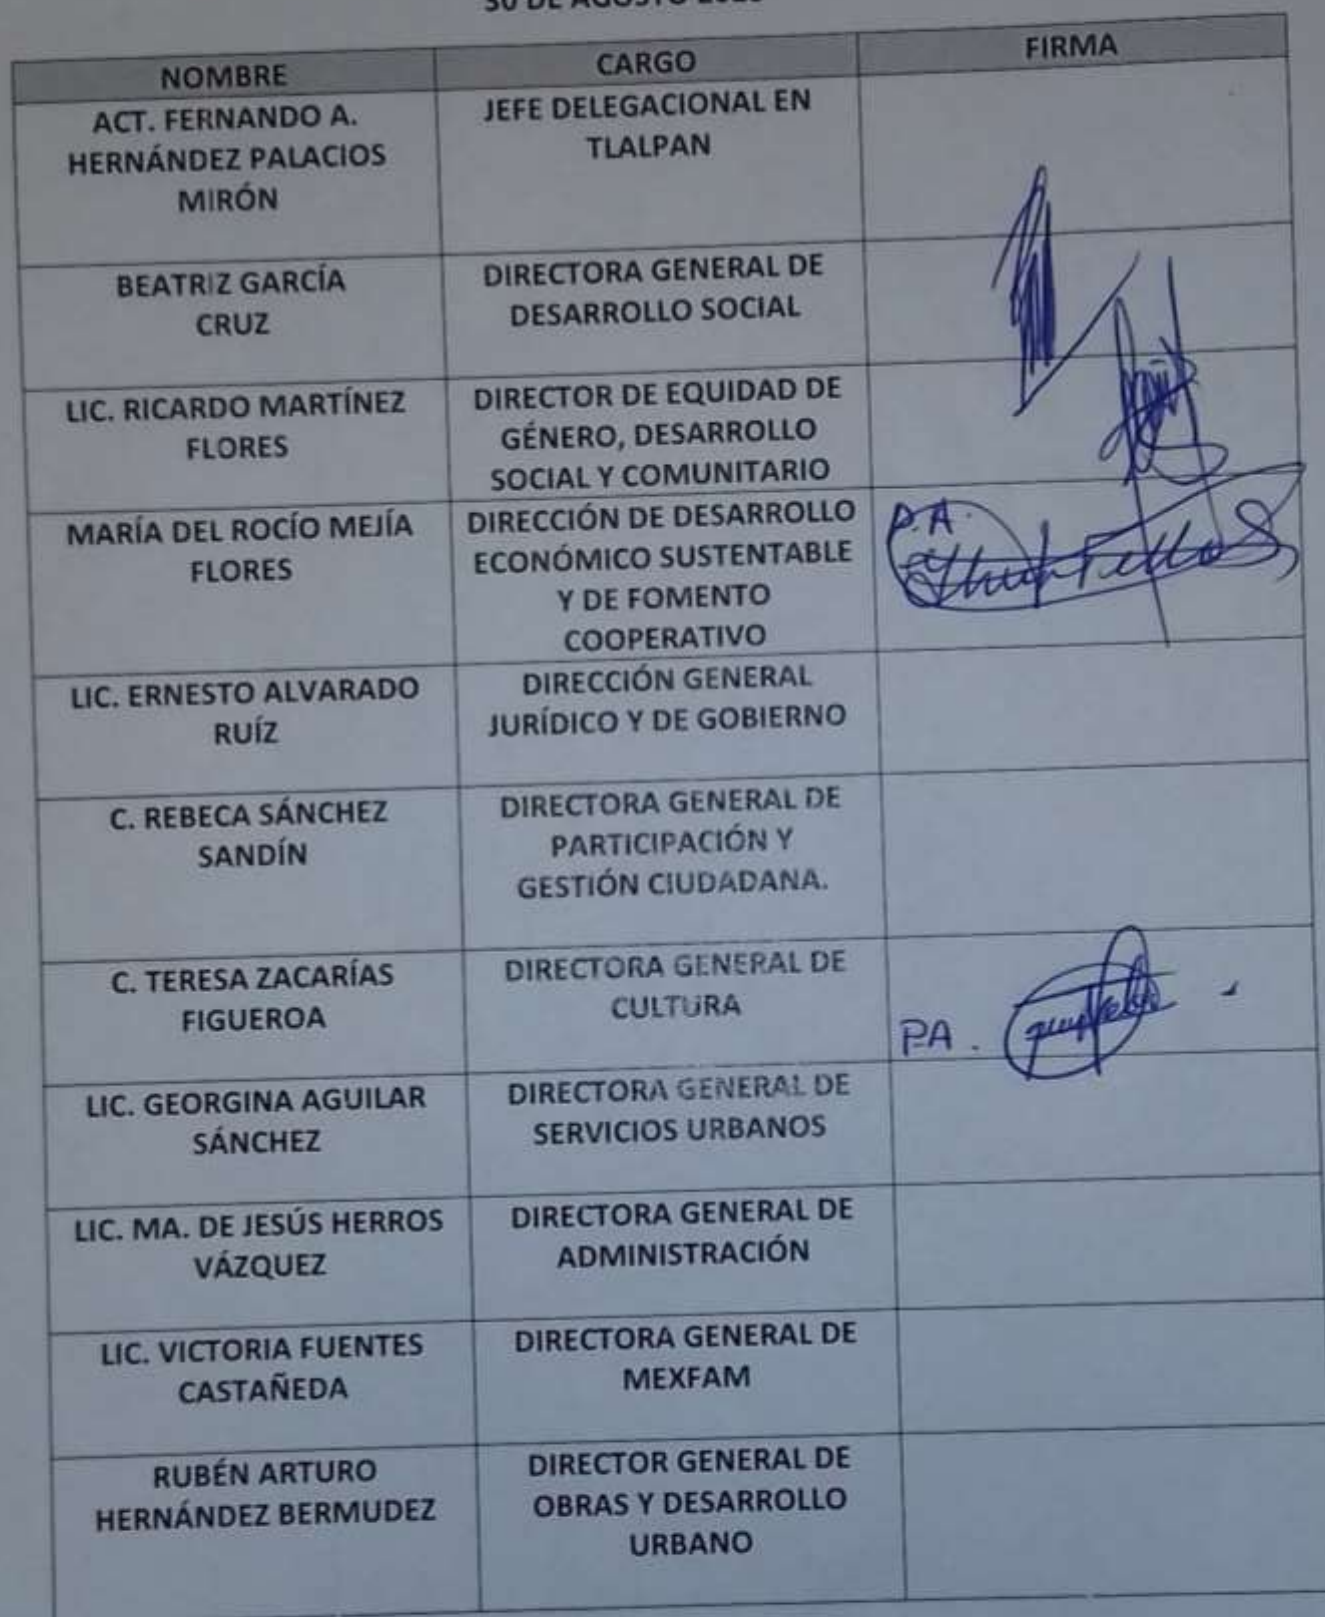 30 DE AGOSTO
NOMBRE
CARGO
FIRMA
ACT. FERNANDO A.
HERNÁNDEZ PALACIOS
MIRÓN
JEFE DELEGACIONAL EN
TLALPAN
BEATRIZ GARCÍA
CRUZ
DIRECTORA GENERAL DE
DESARROLLO SOCIAL
LIC. RICARDO MARTÍNEZ
FLORES
DIRECTOR DE EQUIDAD DE
GÉNERO, DESARROLLO
SOCIAL Y COMUNITARIO
MARÍA DEL ROCÍO MEJÍA
FLORES
DIRECCIÓN DE DESARROLLO
ECONÓMICO SUSTENTABLE
Y DE FOMENTO
COOPERATIVO
P.A.
LIC. ERNESTO ALVARADO
RUÍZ
DIRECCIÓN GENERAL
JURÍDICO Y DE GOBIERNO
C. REBECA SÁNCHEZ
SANDÍN
DIRECTORA GENERAL DE
PARTICIPACIÓN Y
GESTIÓN CIUDADANA.
C. TERESA ZACARÍAS
FIGUEROA
DIRECTORA GENERAL DE
CULTURA
PA.
LIC. GEORGINA AGUILAR
SÁNCHEZ
DIRECTORA GENERAL DE
SERVICIOS URBANOS
LIC. MA. DE JESÚS HERROS
VÁZQUEZ
DIRECTORA GENERAL DE
ADMINISTRACIÓN
LIC. VICTORIA FUENTES
CASTAÑEDA
DIRECTORA GENERAL DE
MEXFAM
RUBÉN ARTURO
HERNÁNDEZ BERMUDEZ
DIRECTOR GENERAL DE
OBRAS Y DESARROLLO
URBANO